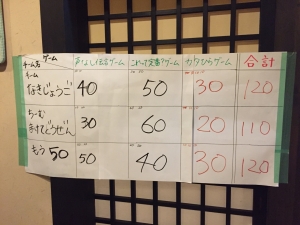 ゲーム
チーム名
ゲーム
これって定番?ゲーム
カタひらゲーム
合計
チーム
なきじょうご 40 50 30 120
ちーむ
まけてどうぜん 30 60 20 110
もう50 50 40 30 120